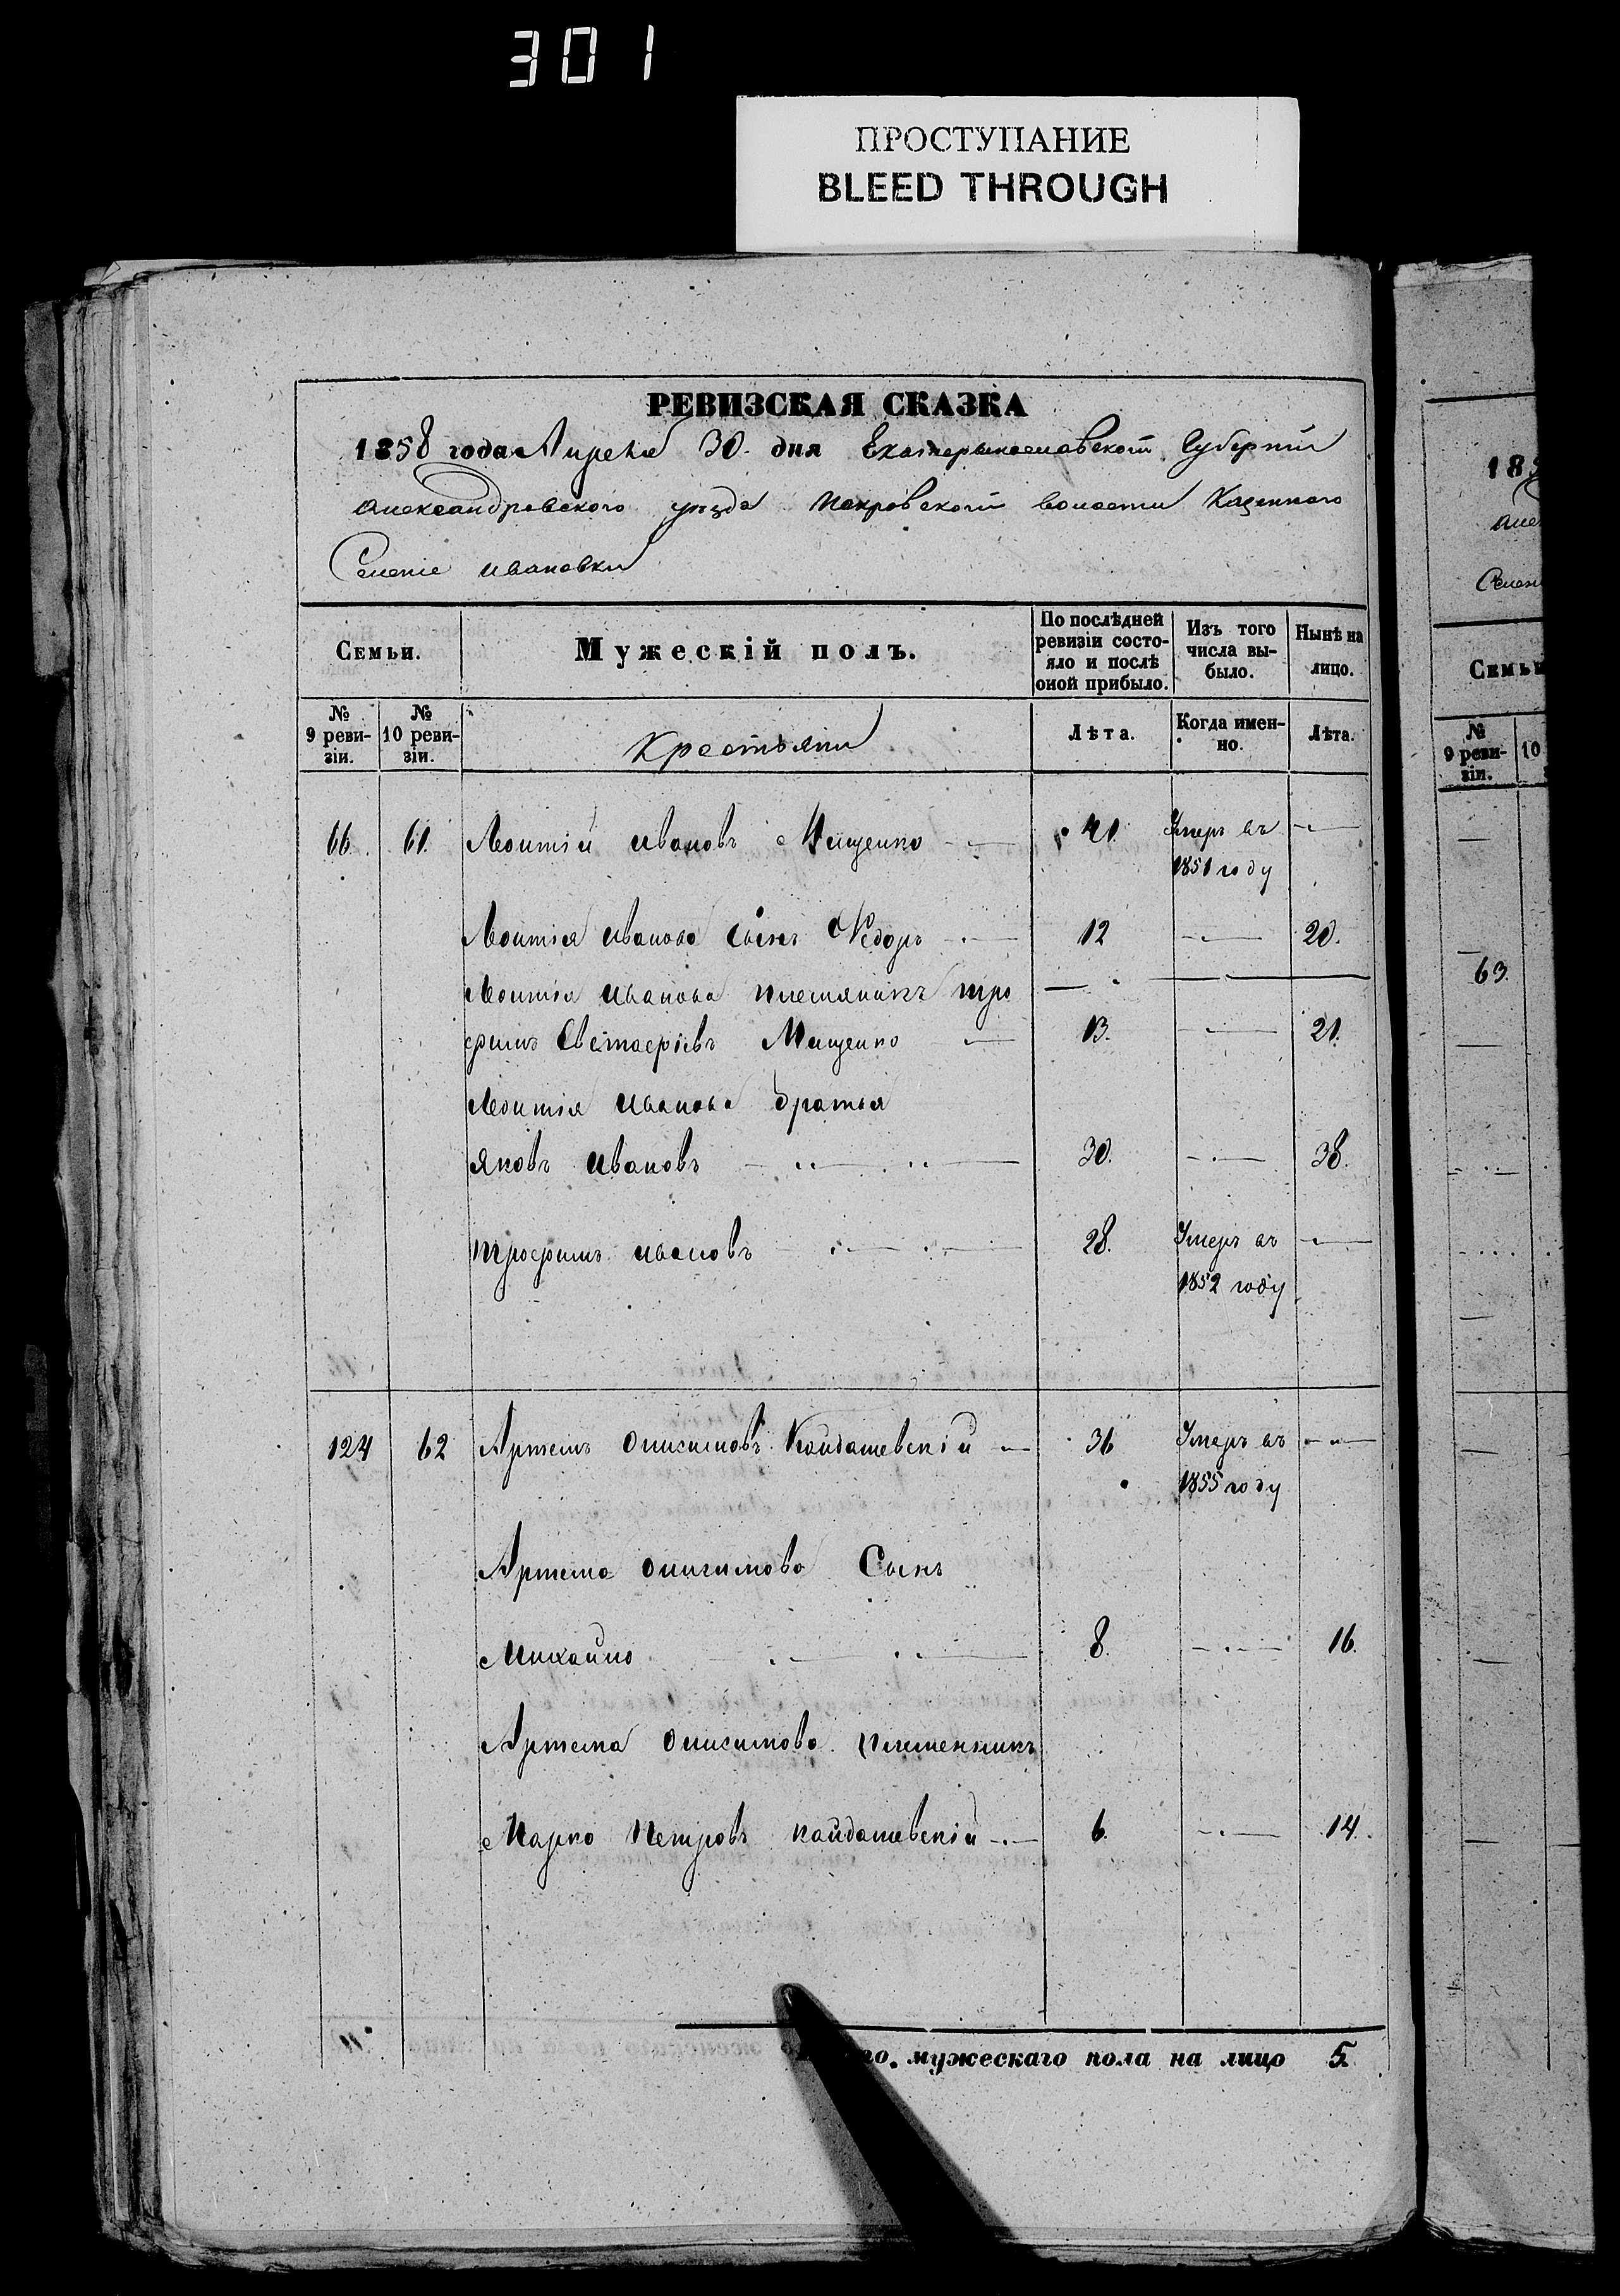 301
ПРОСТУПАНИЕ
BLEED THROUGH
РЕВИЗСКАЯ СКАЗКА
1858 года Апреля 30. дня Екатеринославской Губерніи
Александровского уезда Покровской волости Казенного
Селеніе Ивановки
Семьи.
Мужескій полъ.
По послѣдней ревизіи состояло и послѣ оной прибыло.
Изъ того числа выбыло.
Нынѣ на лицо.
№ 9 ревизіи.
№ 10 ревизіи.
Крестьяни
Лѣта.
Когда именно.
Лѣта.
66. 61. Леонтій Ивановъ Мищенко 41 Умеръ въ —
1851 году
Леонтія Иванова Сынъ Федоръ 12 — 20.
Леонтія Иванова племяникъ Тро — —
фимъ Мищенко — 13. — 21.
Леонтія Иванова братья
Яковъ Ивановъ — 30. — 38.
Трофимъ Ивановъ — 28. Умеръ въ —
1852 году
124 62 Артемъ Онисимовъ Кайдашевскій — 36 Умеръ въ —
1855 году
Артема Онисимова Сынъ
Михайло — 8. — 16.
Артема Онисимова племенникъ
Марко Петровъ Кайдашевскій — 6. — 14.
мужескаго пола на лицо 5.
185
Семьи
№ 9 ревизіи.
10
63.